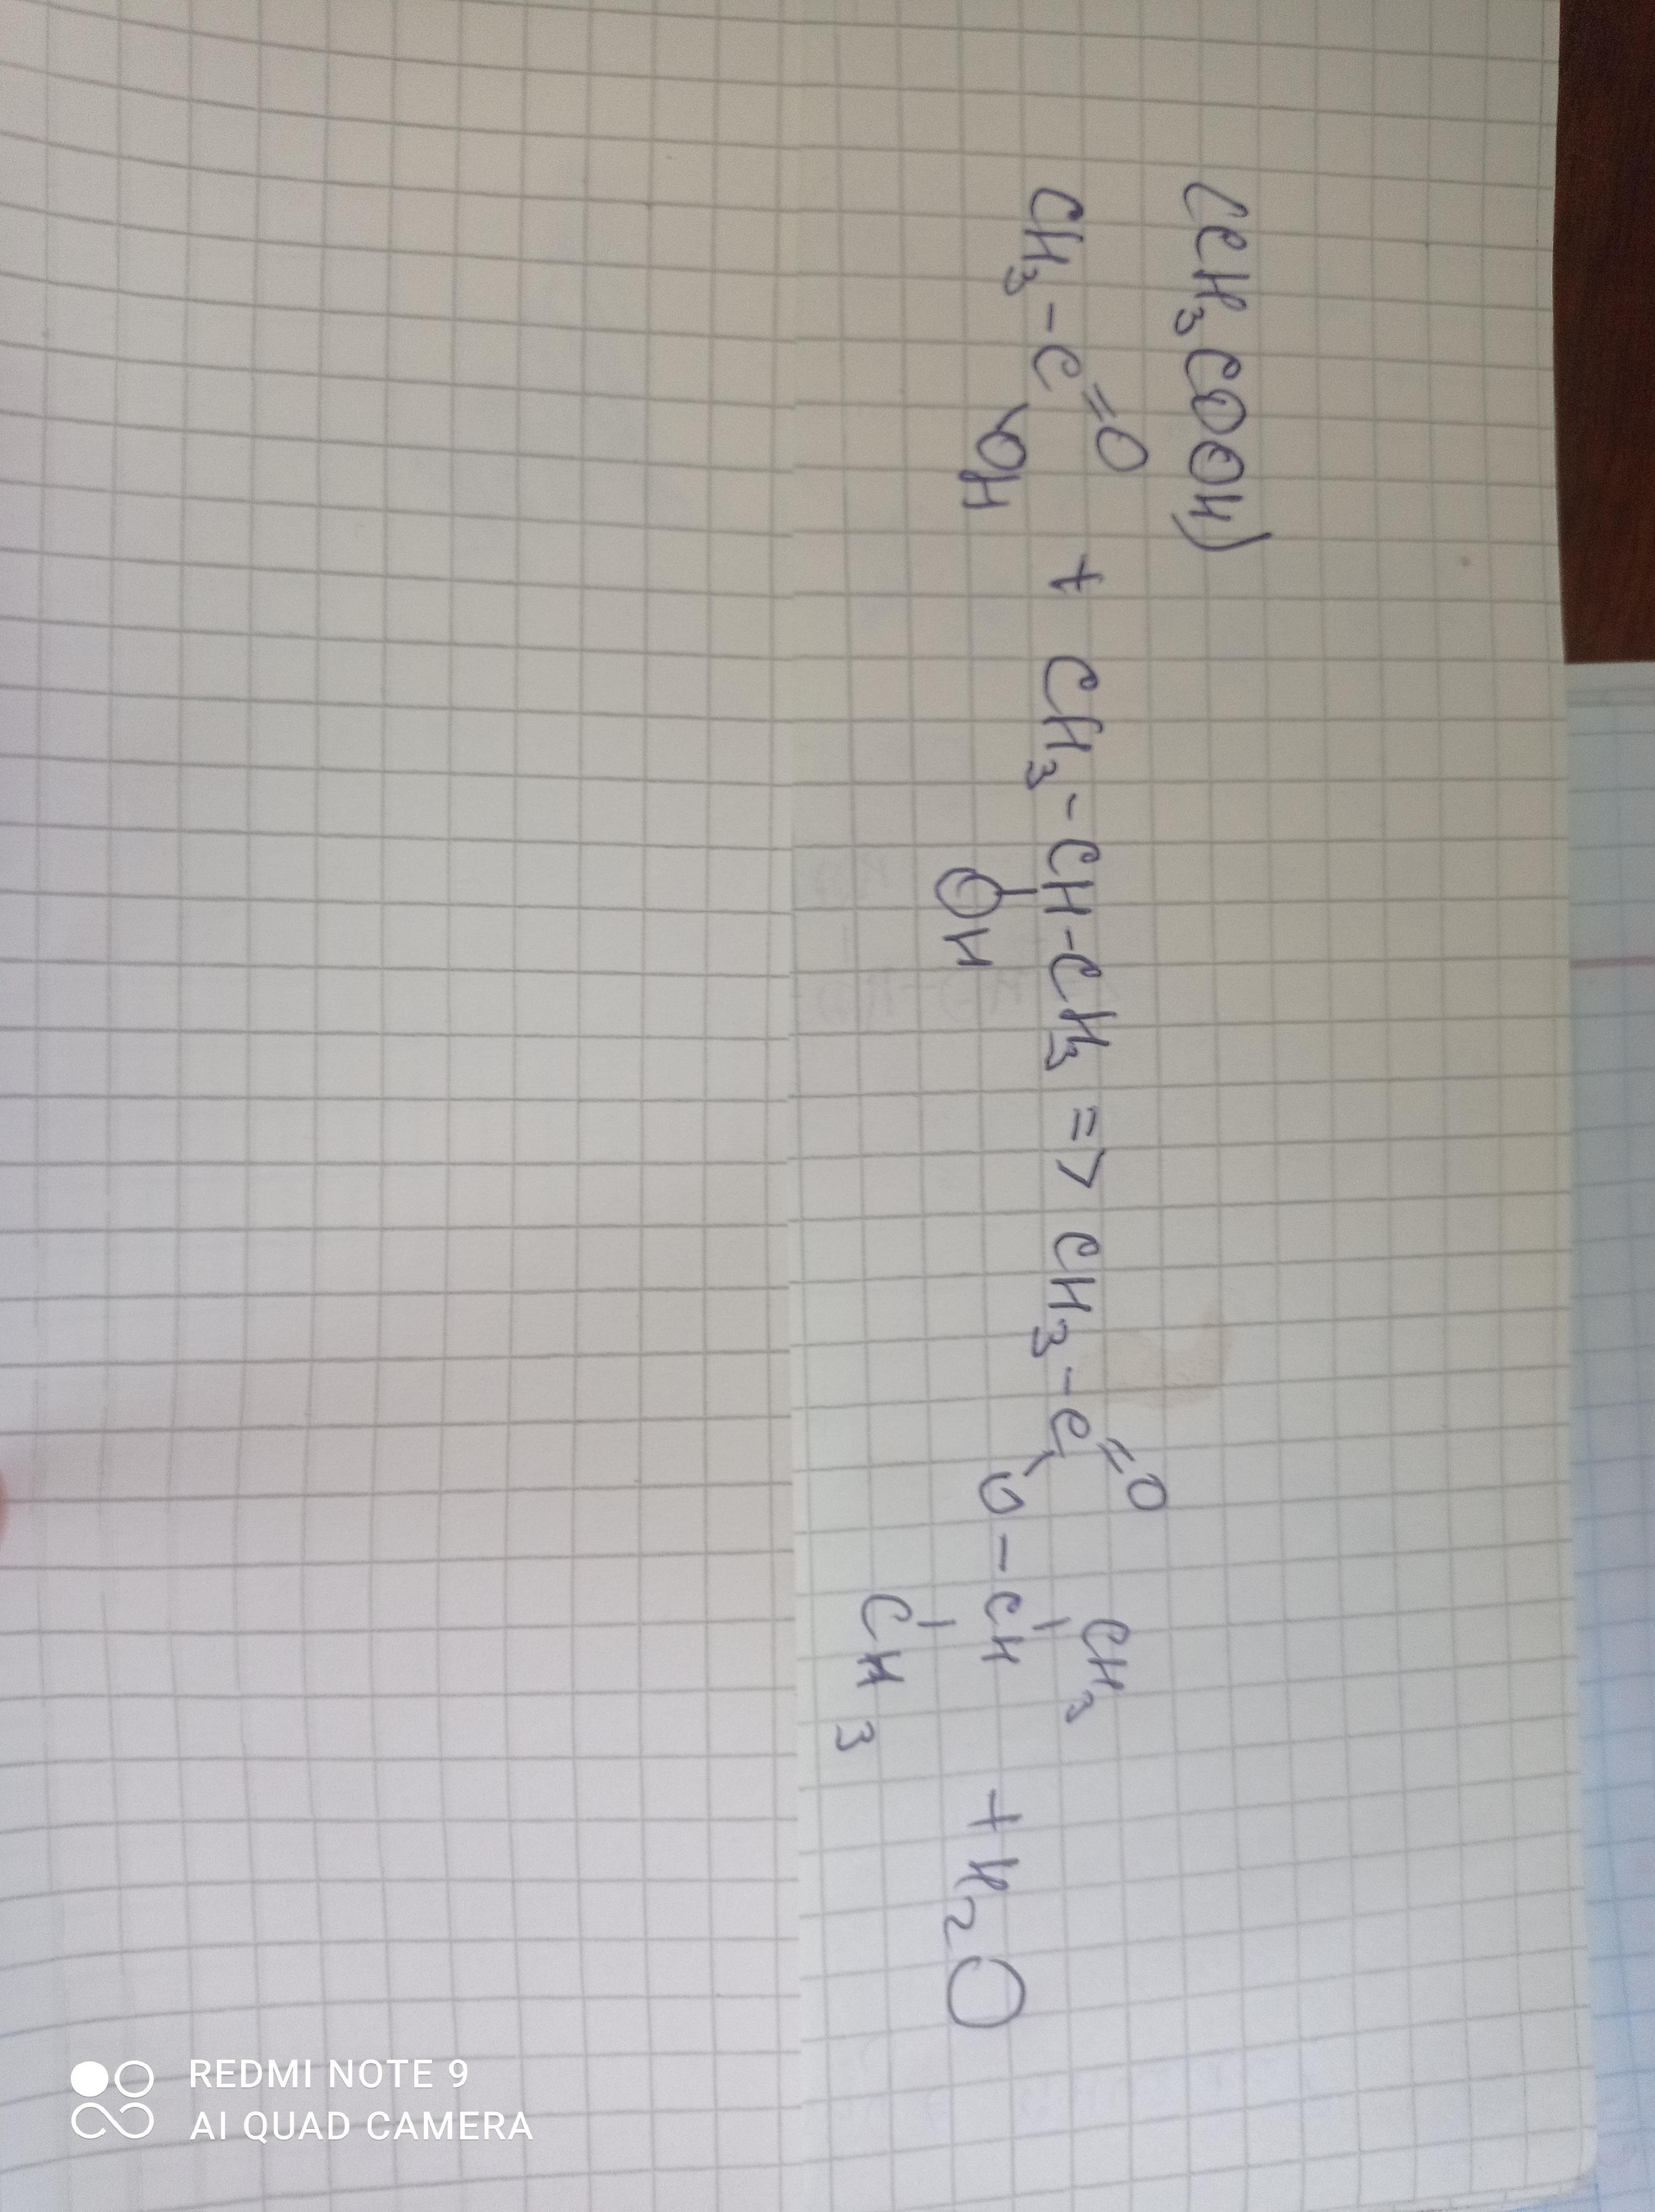 (CH3COOH)
=O CH3 =O
CH3-C + CH3-CH-CH3 => CH3-C
OH OH O-CH + H2O
CH3
REDMI NOTE 9
AI QUAD CAMERA